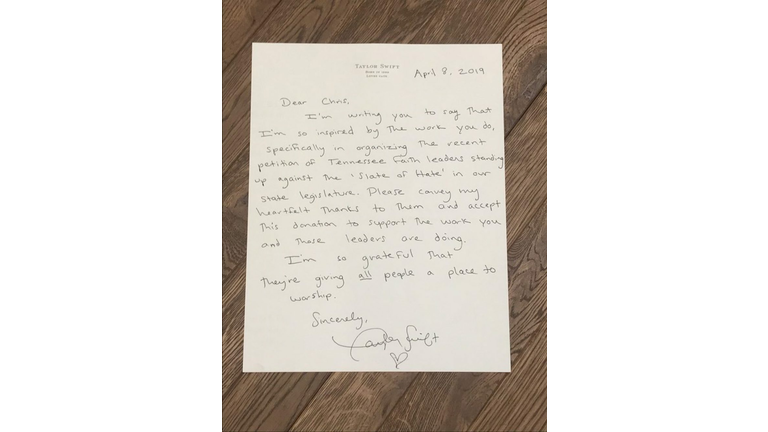 TAYLOR SWIFT
BORN IN 1989
LOVES CATS
April 8, 2019
Dear Chris,
I'm writing you to say that
I'm so inspired by the work you do,
specifically in organizing the recent
petition of Tennessee Faith leaders standing
up against the 'Slate of Hate' in our
state legislature. Please convey my
heartfelt thanks to them and accept
this donation to support the work you
and those leaders are doing.
I'm so grateful that
they're giving all people a place to
worship.
Sincerely,
Taylor Swift